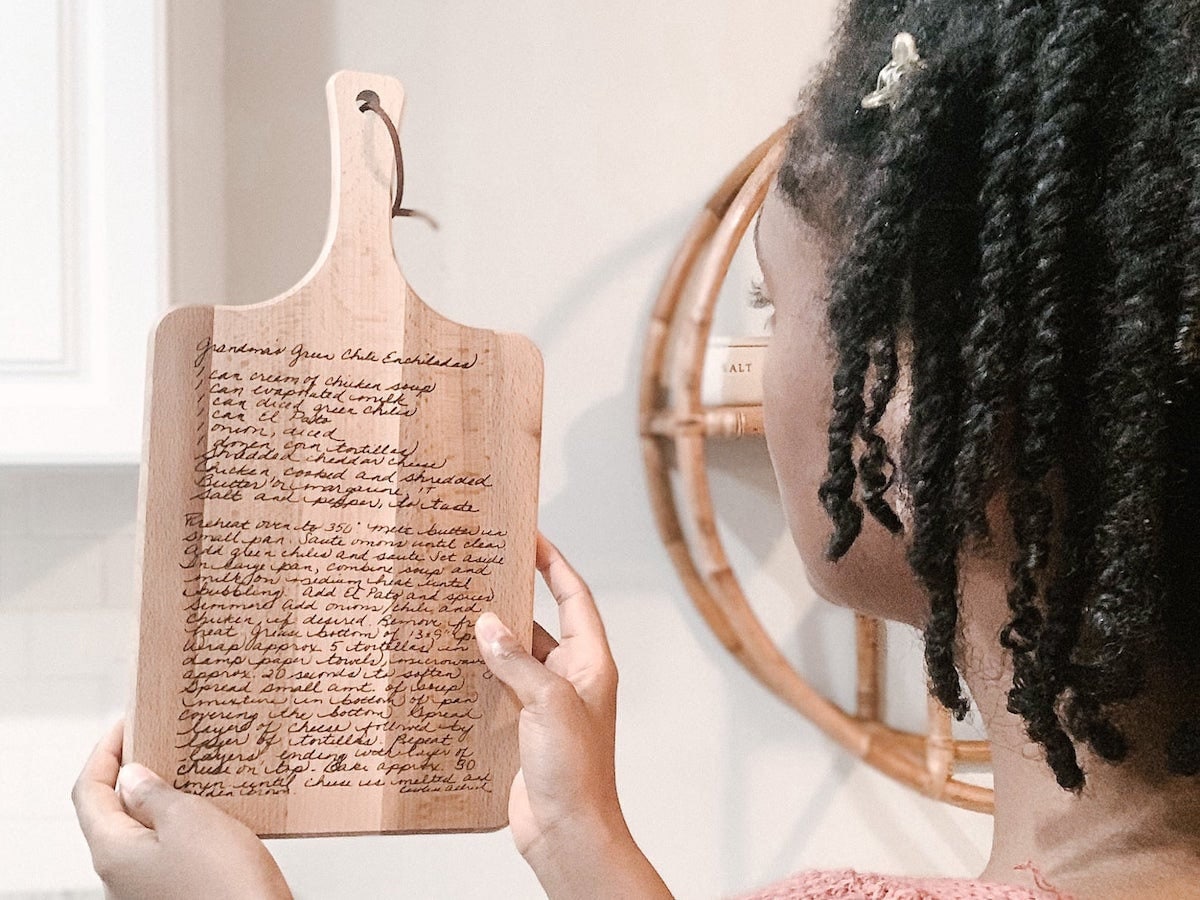 Grandma's Green Chile Enchiladas
1 can cream of chicken soup
1 can evaporated milk
1 can diced green chilis
1 can El Pato
1 onion, diced
1 dozen corn tortillas
Shredded cheddar cheese
Chicken, cooked and shredded
Butter or margarine, 1T
Salt and pepper, to taste
Preheat oven to 350° melt butter in
small pan. Saute onions until clear
add green chilis and saute Set aside
In large pan, combine soup and
milk on medium heat until
bubbling. Add El Pato and spices
Simmer add onions/chili and
chicken, if desired Remove
heat, Grease bottom of 13x9"
Wrap approx 5 tortillas in
damp paper towels, microwave
approx. 20 seconds to soften
Spread small amt. of soup
mixture in bottom of pan
covering the bottom Spread
layer of cheese followed by
layer of tortillas. Repeat
layers, ending with layer of
cheese on top. Bake approx. 30
min until cheese is melted and
golden brown.
ALT